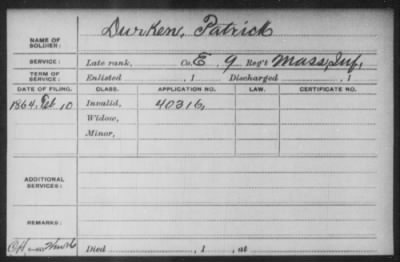 Durken, Patrick
NAME OF SOLDIER:
SERVICE: Late rank, Co. E. 9 Reg't Mass, Inf,
TERM OF SERVICE: Enlisted , 1 Discharged , 1
DATE OF FILING. CLASS. APPLICATION NO. LAW. CERTIFICATE NO.
1864, 10 Invalid, 40316,
Widow,
Minor,
ADDITIONAL SERVICES:
REMARKS:
Died , 1 , at